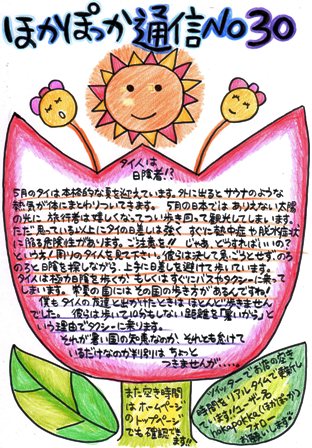 ほかぽっか通信No30
タイ人は
日陰者!?
5月のタイは本格的な夏を迎えています。外に出るとサウナのような
熱気が体にまとわりついてきます。 5月の日本ではありえない太陽
の光に旅行者は嬉しくなってつい歩き回って観光してしまいます。
ただ見っている以上にタイの日差しは強く すぐに熱中症や脱水症状
に陥る危険性があります。ご注意を!! じゃあ、どうすればいいの?
という方!周りのタイ人を見て下さい。彼らは決して急ごうとせず、のろ
のろと日陰を探しながら、上手に日差しを避けて歩いています。
タイ人は極力日陰を歩くか、もしくはすぐにバスやタクシーに乗って
しまいます。常夏の国にはその国の歩き方があるんですね!
僕もタイの友達と出かけたときはほとんど歩きません
でした。 彼らは歩いて10分もしない距離を「暑いから」と
いう理由でタクシーに乗ります。
それが暑い国の知恵なのか、それとも怠けて
いるだけなのか判別は ちょっと
つきませんが・・・・・
また空き時間
はホームページ
のトップページ
でも確認でき
ます!!
ツイッターでお店の空き
時間をリアルタイムで更新し
ています!!ユーザー名
hokapokka(ほかぽっか)
フォロー
お願いします